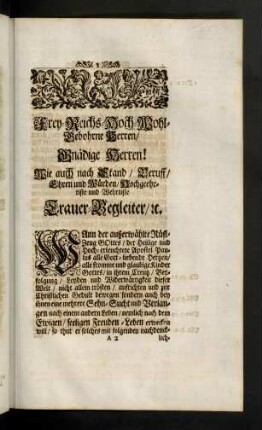 Frey-Reichs-Hoch-Wohl-
Gebohrne Herren/
Gnädige Herren!
Wie auch nach Stand/ Beruff/
Ehren und Würden/ Hochgeehr-
teste und Wehrteste
Trauer-Begleiter/ ꝛc.
WAnn der außerwählte Rüst-
Zeug GOttes/ der Heilige und
Hoch-erleuchtete Apostel Pau-
lus alle Gott-liebende Hertzen/
alle fromme und glaubige Kinder
Gottes/ in ihrem Creutz/ Ver-
folgung/ Leyden und Widerwärtigkeit dieser
Welt/ nicht allein trösten/ auffrichten und zur
Christlichen Gedult bewegen sondern auch bey
ihnen eine mehrere Sehn-Sucht und Verlan-
gen nach einem andern Leben/ nemlich nach dem
Ewigen/ seeligen Freuden-Leben erwecken
will/ so thut er solches mit folgenden nachdenck-
A 2 lich-